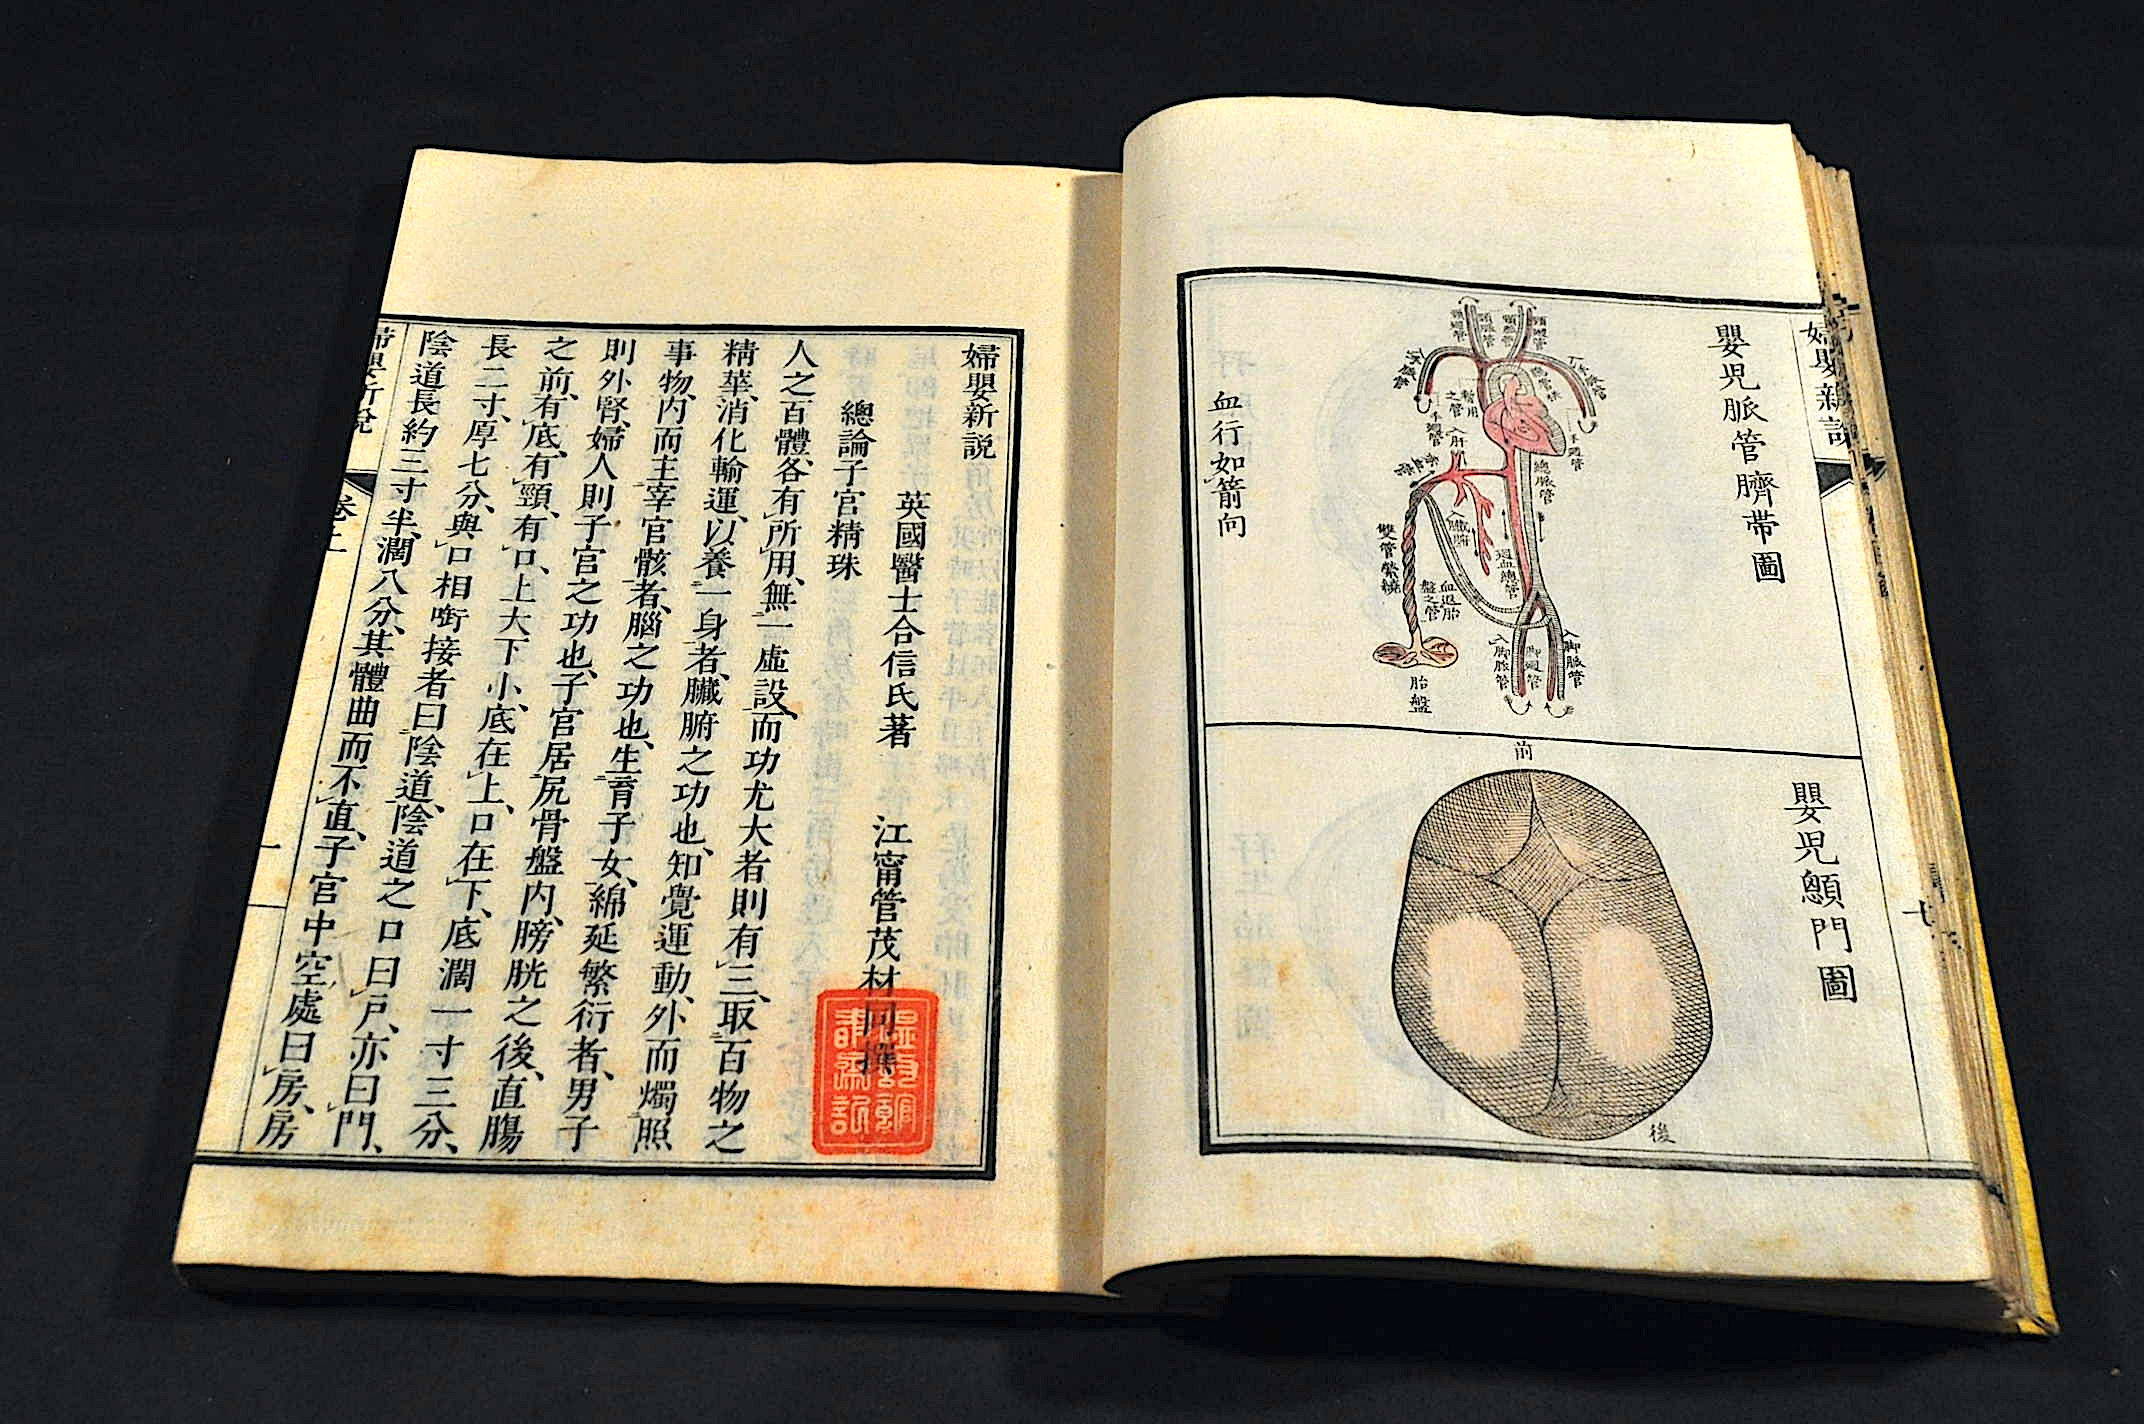 婦嬰新說
嬰兒脈管臍帶圖
血行如箭向
總脈管
入肝
入臟腑
迴血總管
雙管縈繞
血返胎
盤之管
胎盤
入腳脈管
腳迴管
入腳脈管
嬰兒顖門圖
前
後
七
婦嬰新說
英國醫士合信氏著 江甯管茂材同撰
總論子宮精珠
人之百體、各有所用、無一虛設、而功尤大者則有三、取百物之
精華、消化輸運、以養一身者、臟腑之功也、知覺運動、外而燭照
事物、內而主宰官骸者、腦之功也、生育子女、綿延繁衍者、男子
則外腎、婦人則子宮之功也、子宮居尻骨盤內、膀胱之後、直腸
之前、有底、有頸、有口、上大下小、底在上、口在下、底濶一寸三分、
長二寸、厚七分、與口相啣接者曰陰道、陰道之口曰戶、亦曰門、
陰道長約三寸半、濶八分、其體曲而不直、子宮中空處曰房、房
婦嬰新說
卷二
一